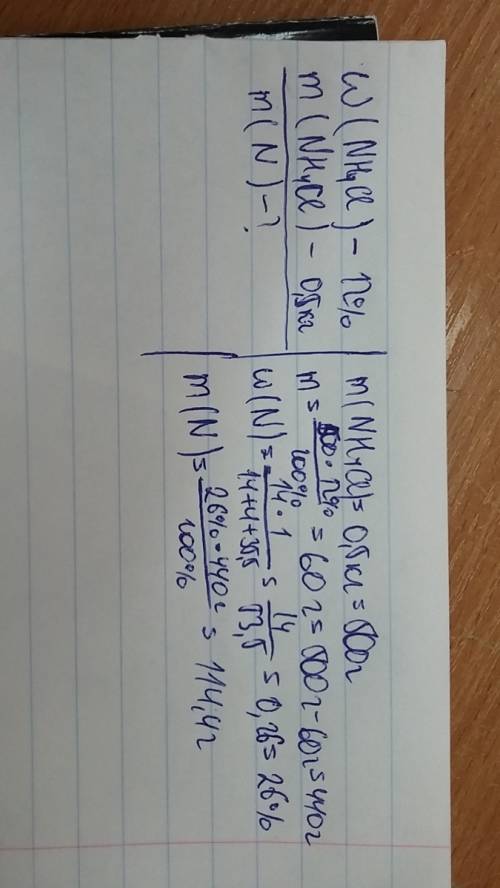 w(NH₄Cl) – 12%
m(NH₄Cl) – 0,5кг
m(N) – ?
m(NH₄Cl) = 0,5кг = 500г
m = 500 · 12% / 100% = 60г = 500г – 60г = 440г
w(N) = 14 · 1 / 14+4+35,5 = 14 / 53,5 = 0,26 = 26%
m(N) = 26% · 440г / 100% = 114,4г